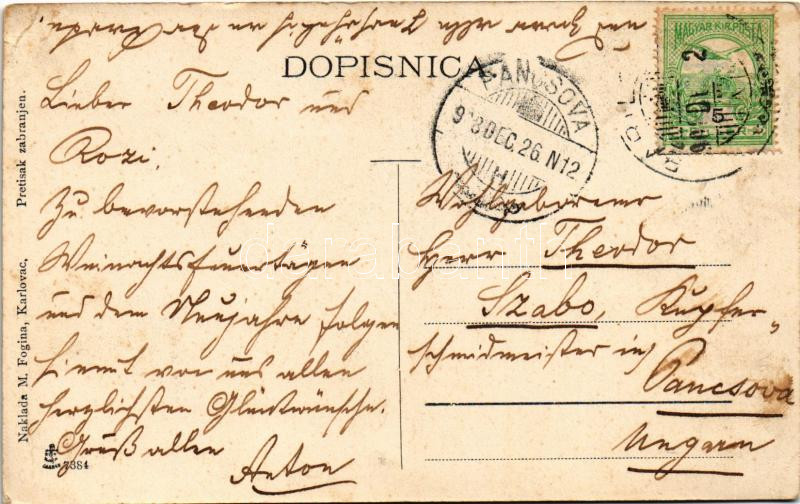 DOPISNICA
Lieber Theodor und
Rozi.
Zu bevorstehenden
Weinachtsfeuertagen
und dem Neujahre folgen
hiemit von uns allen
herzlichsten Glückwünsche.
Gruß allen
Anton
Wohlgeborene
Herr Theodor
Szabo, Kupfer„
schmidmeister in
Pancsova
Ungarn
MAGYAR KIR. POSTA
PANCSOVA
DEC. 26. N12
Naklada M. Fogina, Karlovac. Pretisak zabranjen.
7384